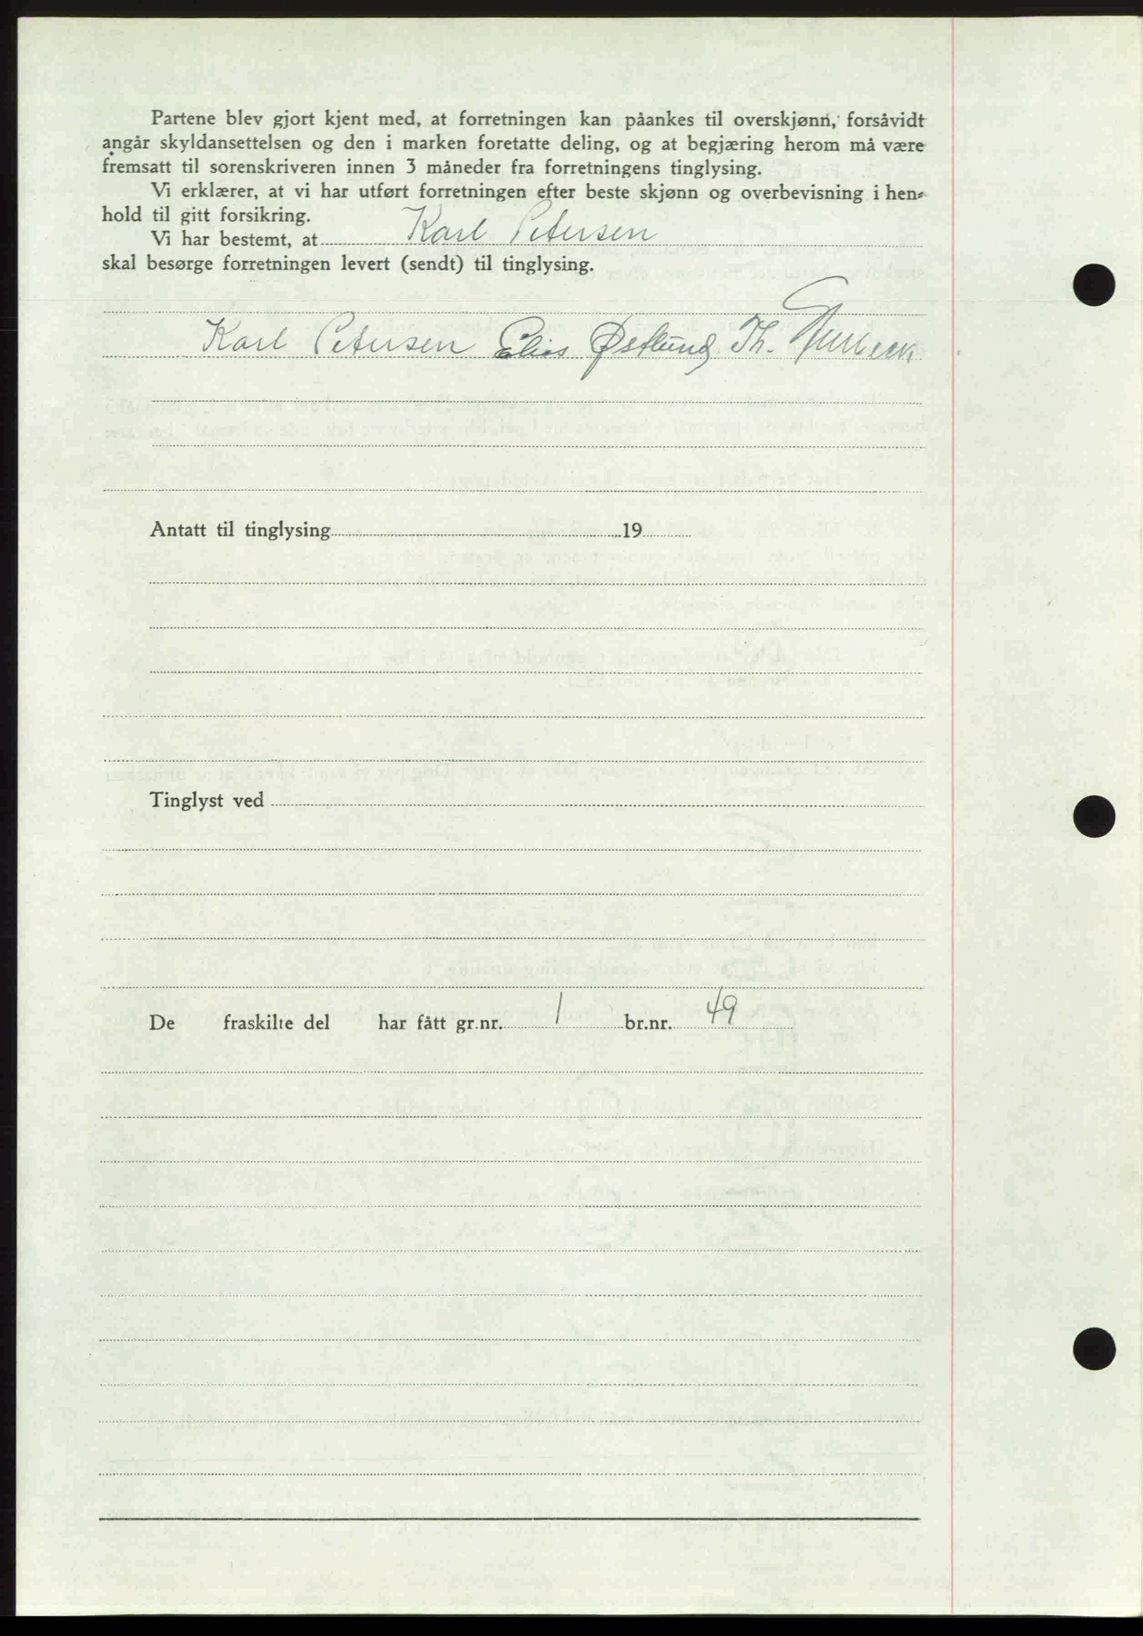 Partene blev gjort kjent med, at forretningen kan påankes til overskjønn, forsåvidt
angår skyldansettelsen og den i marken foretatte deling, og at begjæring herom må være
fremsatt til sorenskriveren innen 3 måneder fra forretningens tinglysing.
Vi erklærer, at vi har utført forretningen efter beste skjønn og overbevisning i hen-
hold til gitt forsikring.
Vi har bestemt, at Karl Petersen
skal besørge forretningen levert (sendt) til tinglysing.
Karl Petersen Elias Østlund Th.
Antatt til tinglysing 19
Tinglyst ved
De fraskilte del har fått gr.nr. 1 br.nr. 49